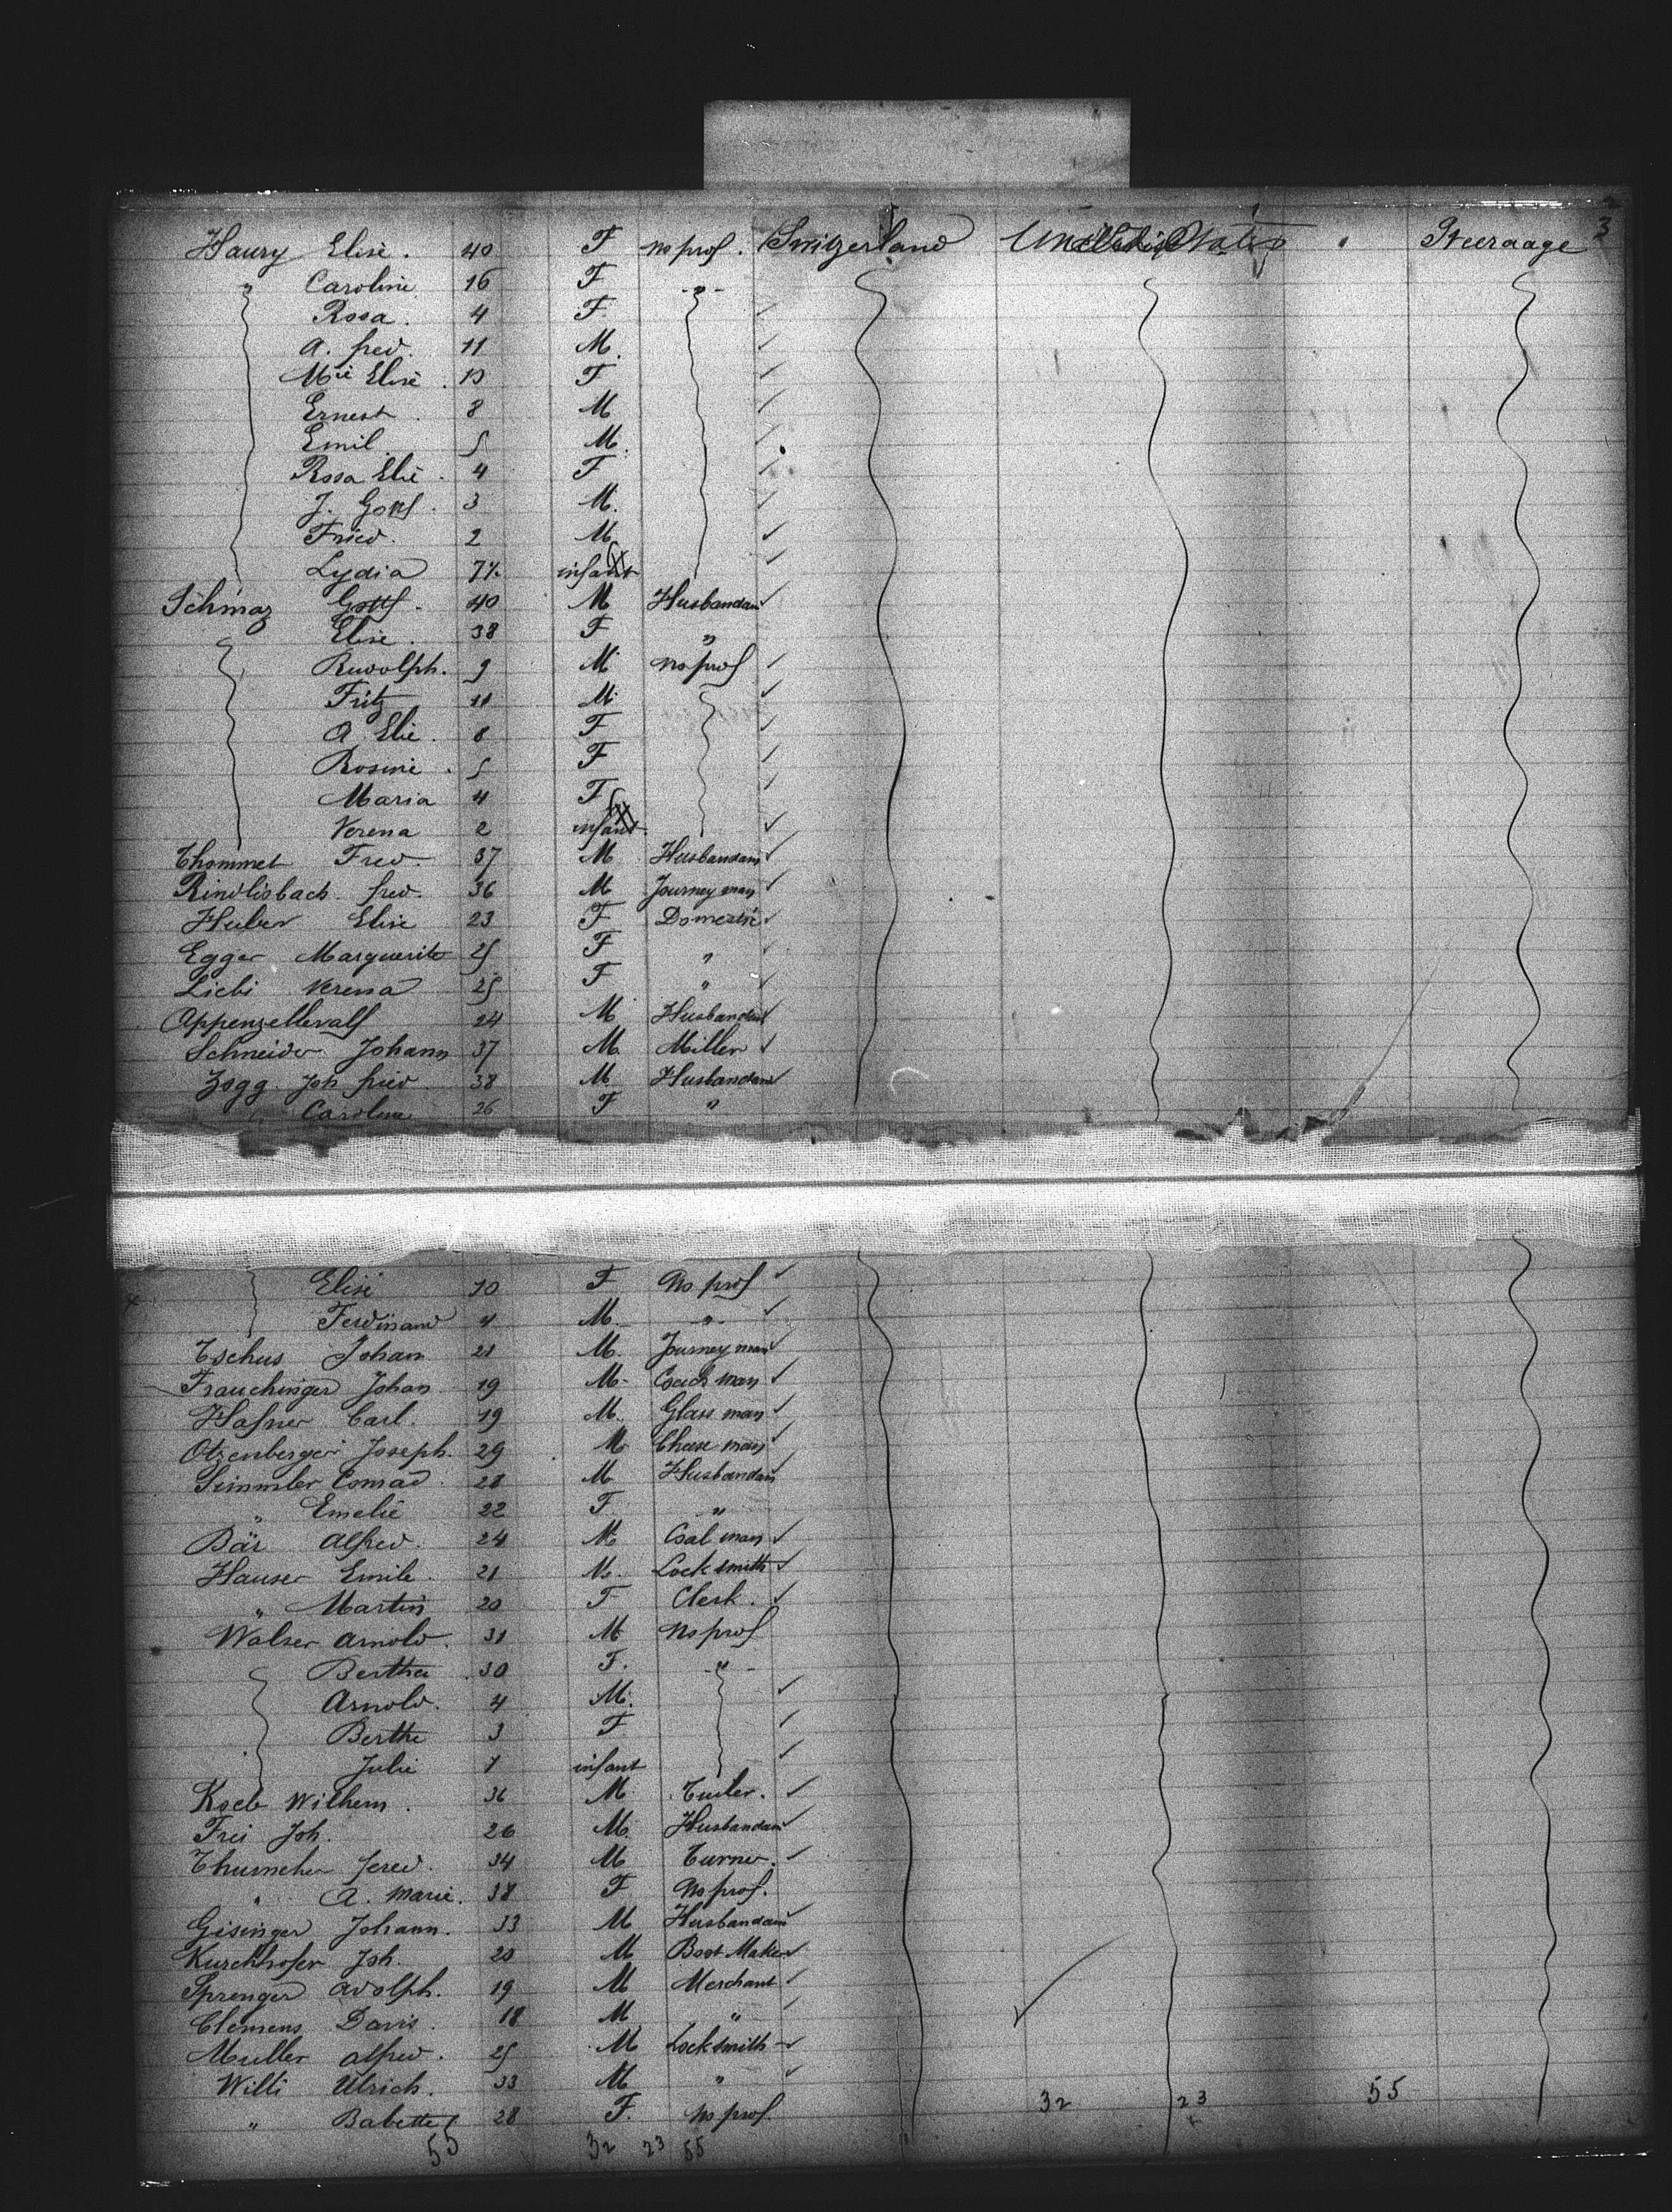 3
Haury Elise. 40 F no prof. Switzerland United States " Steeraage
" Caroline 16 F -"-
Rosa. 4 F
A. fred. 11 M.
Mie Elise. 10 F
Ernest. 8 M
Emil 5 M.
Rosa Elie. 4 F
J. Gottf. 3 M.
Fried. 2 M
Lydia 7/. infant
Schmaz Gottf. 40 M Husbandan
Elise. 38 F "
Rudolph. 9 M no prof
Fritz 11 M.
A. Elie. 8 F
Rosine. 5 F
Maria 4 F
Verena 2 infant
Thommet Fred. 37 M Husbandan
Rindlisbach. fred. 36 M Journey man
Huber Elise 23 F Domestic
Egger Marguerite 25 F "
Liebi Verena 25 F "
Appenzelleralf 24 M Husbandan
Schneider Johann 37 M. Miller
Zogg. Joh fried. 38 M. Husbandan
Caroline 26 F "
Elise 10 F No prof
Ferdinand 4 M. -"-
Tschus Johan 21 M. Journey man
Frauchinger Johan. 19 M. Coach man
Hafner Carl. 19 M. Glass man
Otzenberger Joseph. 29 M Cheese man
Simmler Conrad. 28 M Husbandan
" Emelie 22 F "
Bär Alfred. 24 M. Coal man
Hauser Emile. 21 M. Lock smith
" Martin 20 F Clerk.
Walser Arnold. 31 M No prof
Bertha. 30 F. -"-
Arnold. 4 M.
Berthe 3 F
Julie 1 infant
Koeb Wilhem. 36 M.
Frei Joh. 26 M. Husbandan
34 M Turner.
" A. Marie. 38 F No prof.
Gisinger Johann. 33 M Husbandan
Kurchhofer Joh. 20 M Boot Maker
Sprenger Adolph. 19 M Merchant
Clemens Davis. 18 M "
Muller Alfred. 25 M Locksmith
Willi Ulrich. 33 M "
" Babette 28 F. No prof. 32 23 55
55 32 23 55